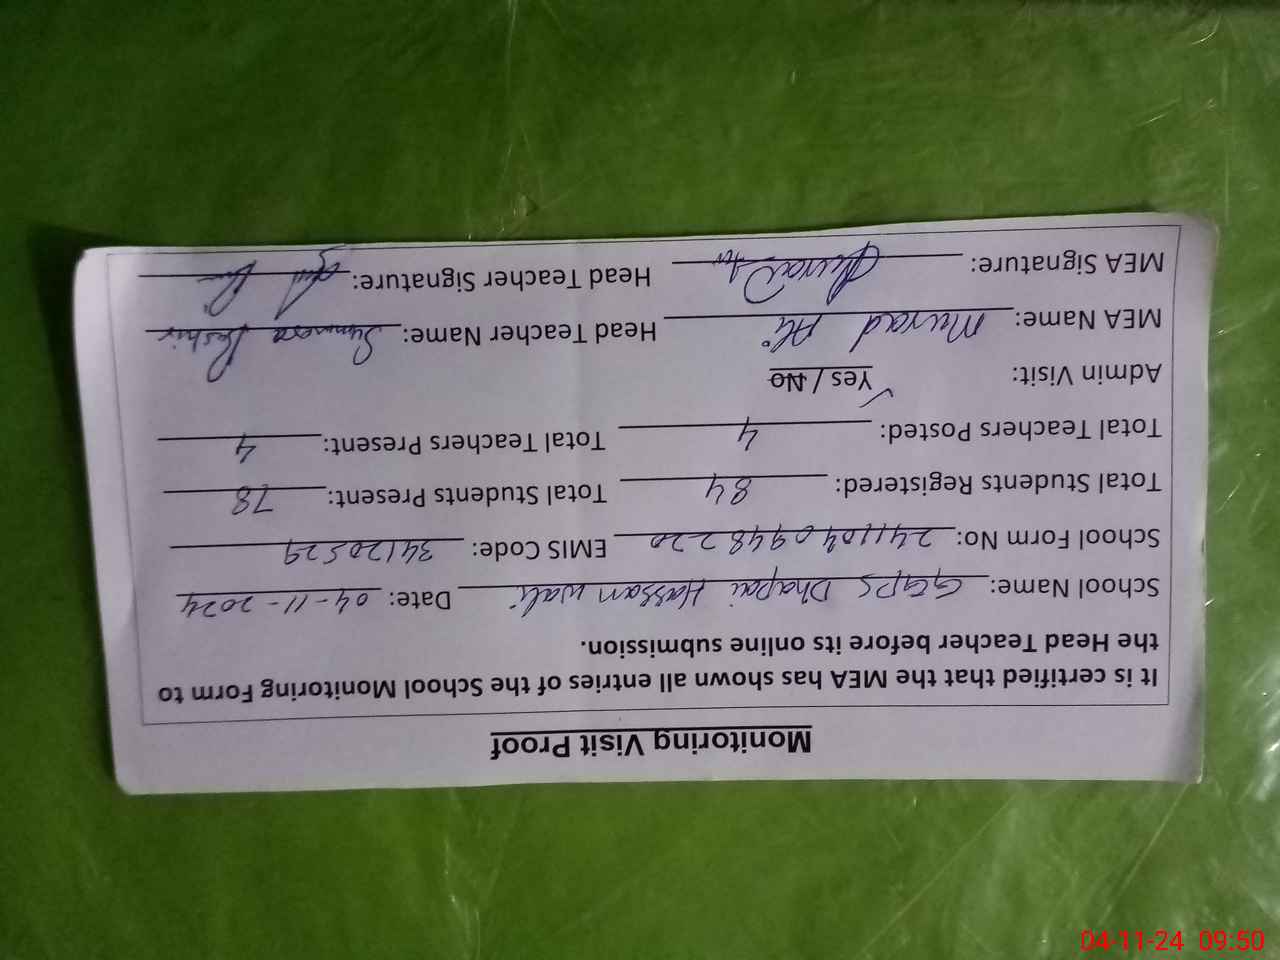 Monitoring Visit Proof
It is certified that the MEA has shown all entries of the School Monitoring Form to
the Head Teacher before its online submission.
School Name: GGPS Dhapai Hassan wali Date: 04-11-2024
School Form No: 241104094822 0 EMIS Code: 34120529
Total Students Registered: 84 Total Students Present: 78
Total Teachers Posted: 4 Total Teachers Present: 4
Admin Visit: Yes / No
MEA Name: Murad Ali Head Teacher Name: Summera Bashir
MEA Signature: Murad Head Teacher Signature:
04-11-24 09:50